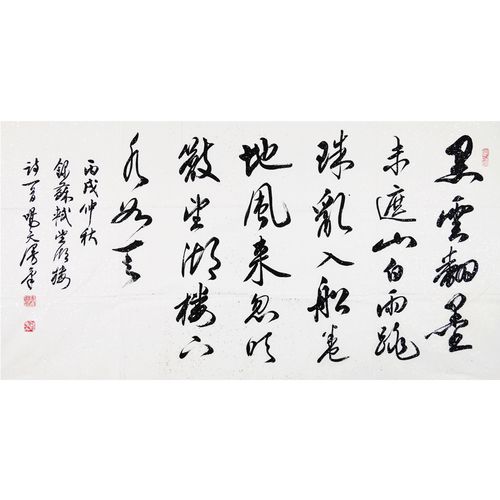 黑雲翻墨
未遮山白雨跳
珠亂入船卷
地風来忽吹
散望湖樓下
水如天
丙戌仲秋
録蘇軾望湖樓
詩